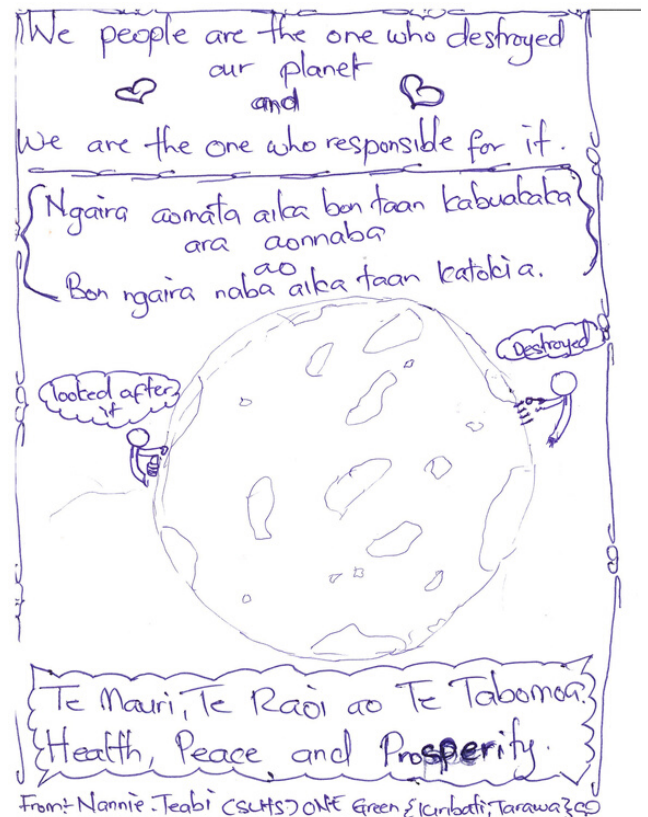 We people are the one who destroyed
our planet
and
We are the one who responsible for it.
Ngaira aomata aika bon taan kabuakaka
ara aonnaba
ao
Bon ngaira naba aika taan katokia.
Destroyed
looked after
it
Te Mauri, Te Raoi ao Te Tabomoa.
Health, Peace and Prosperity.
From:- Nannie. Teabi (SLHS) ONE Green {Kiribati, Tarawa}